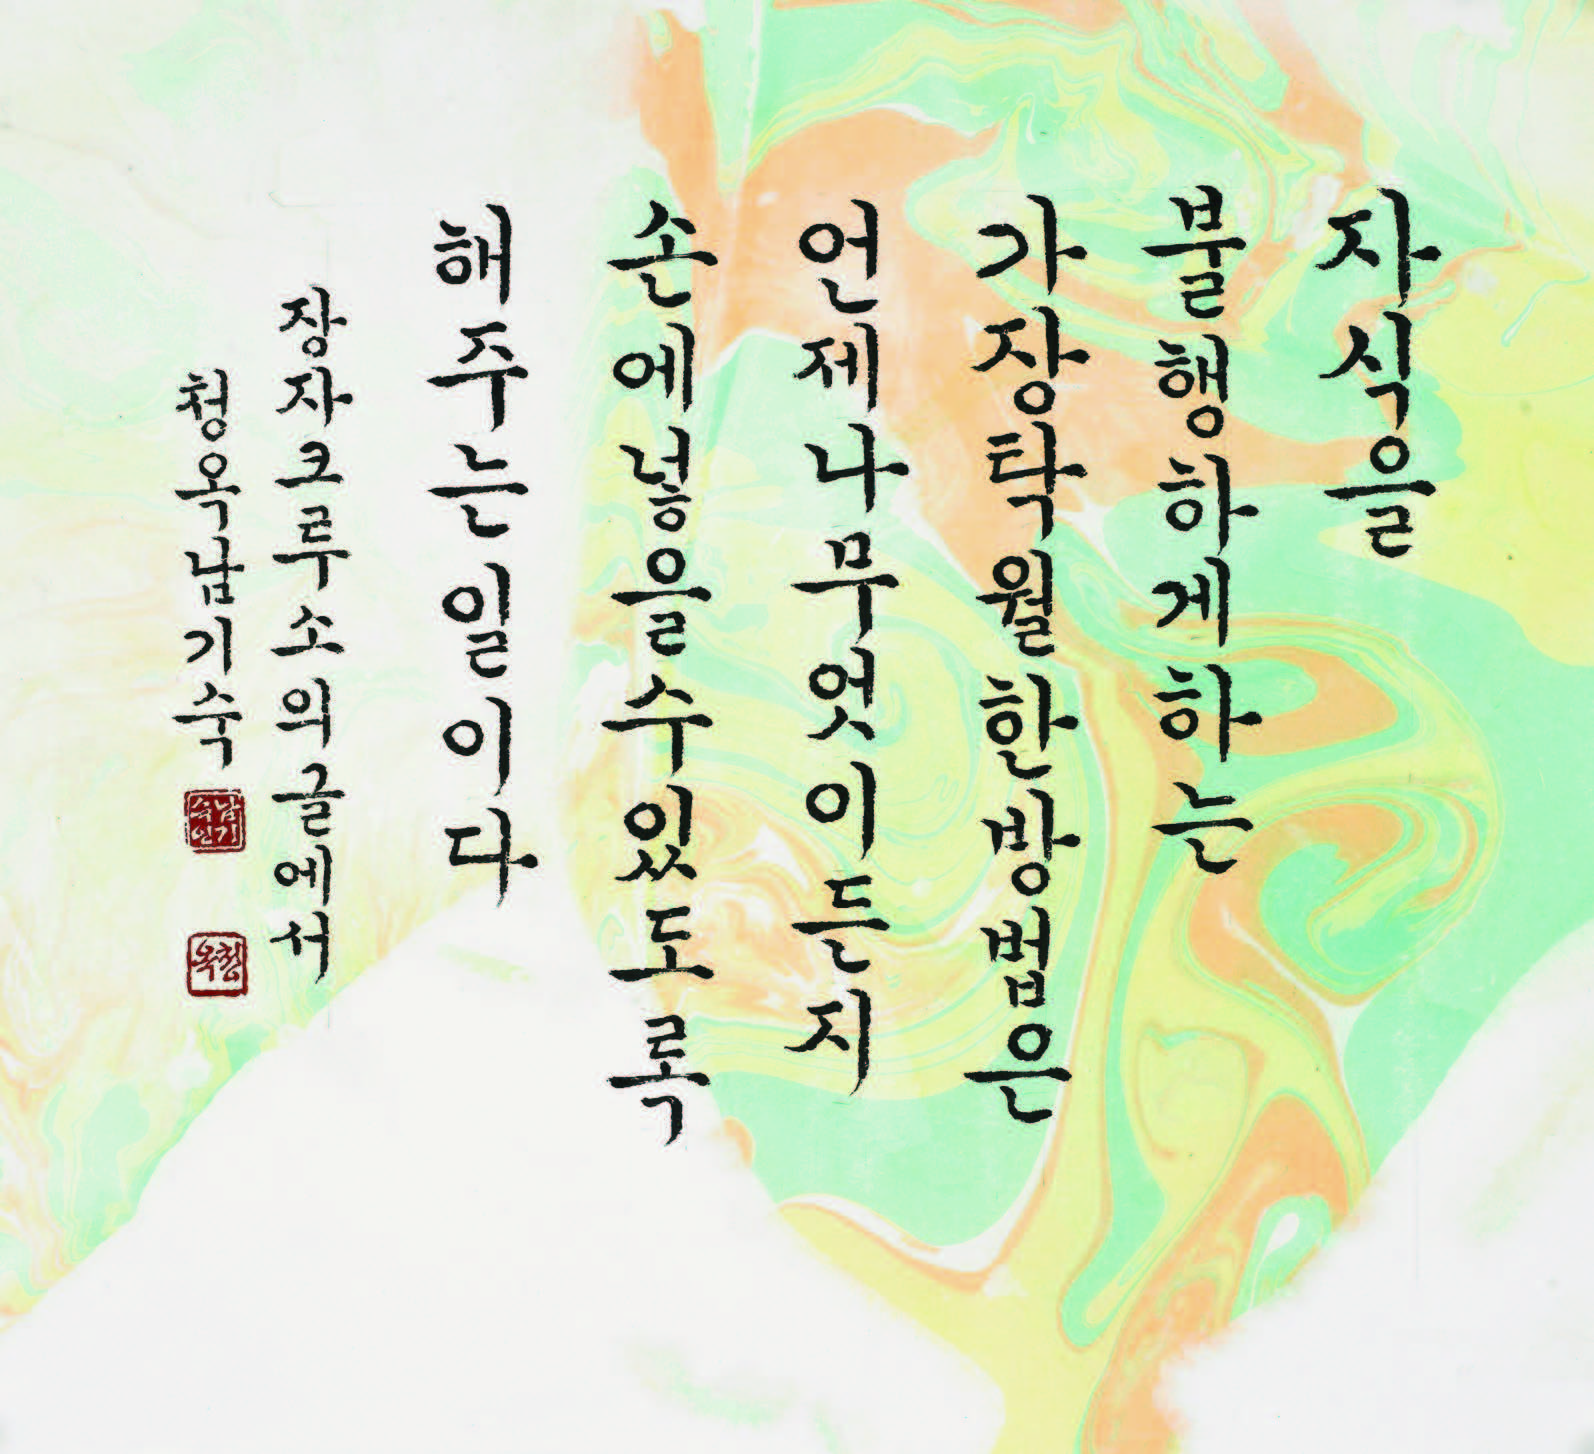 자식을
불행하게하는
가장탁월한방법은
언제나무엇이든지
손에넣을수있도록
해주는일이다
장자크루소의글에서
청옥남기숙
남기
숙인
청옥